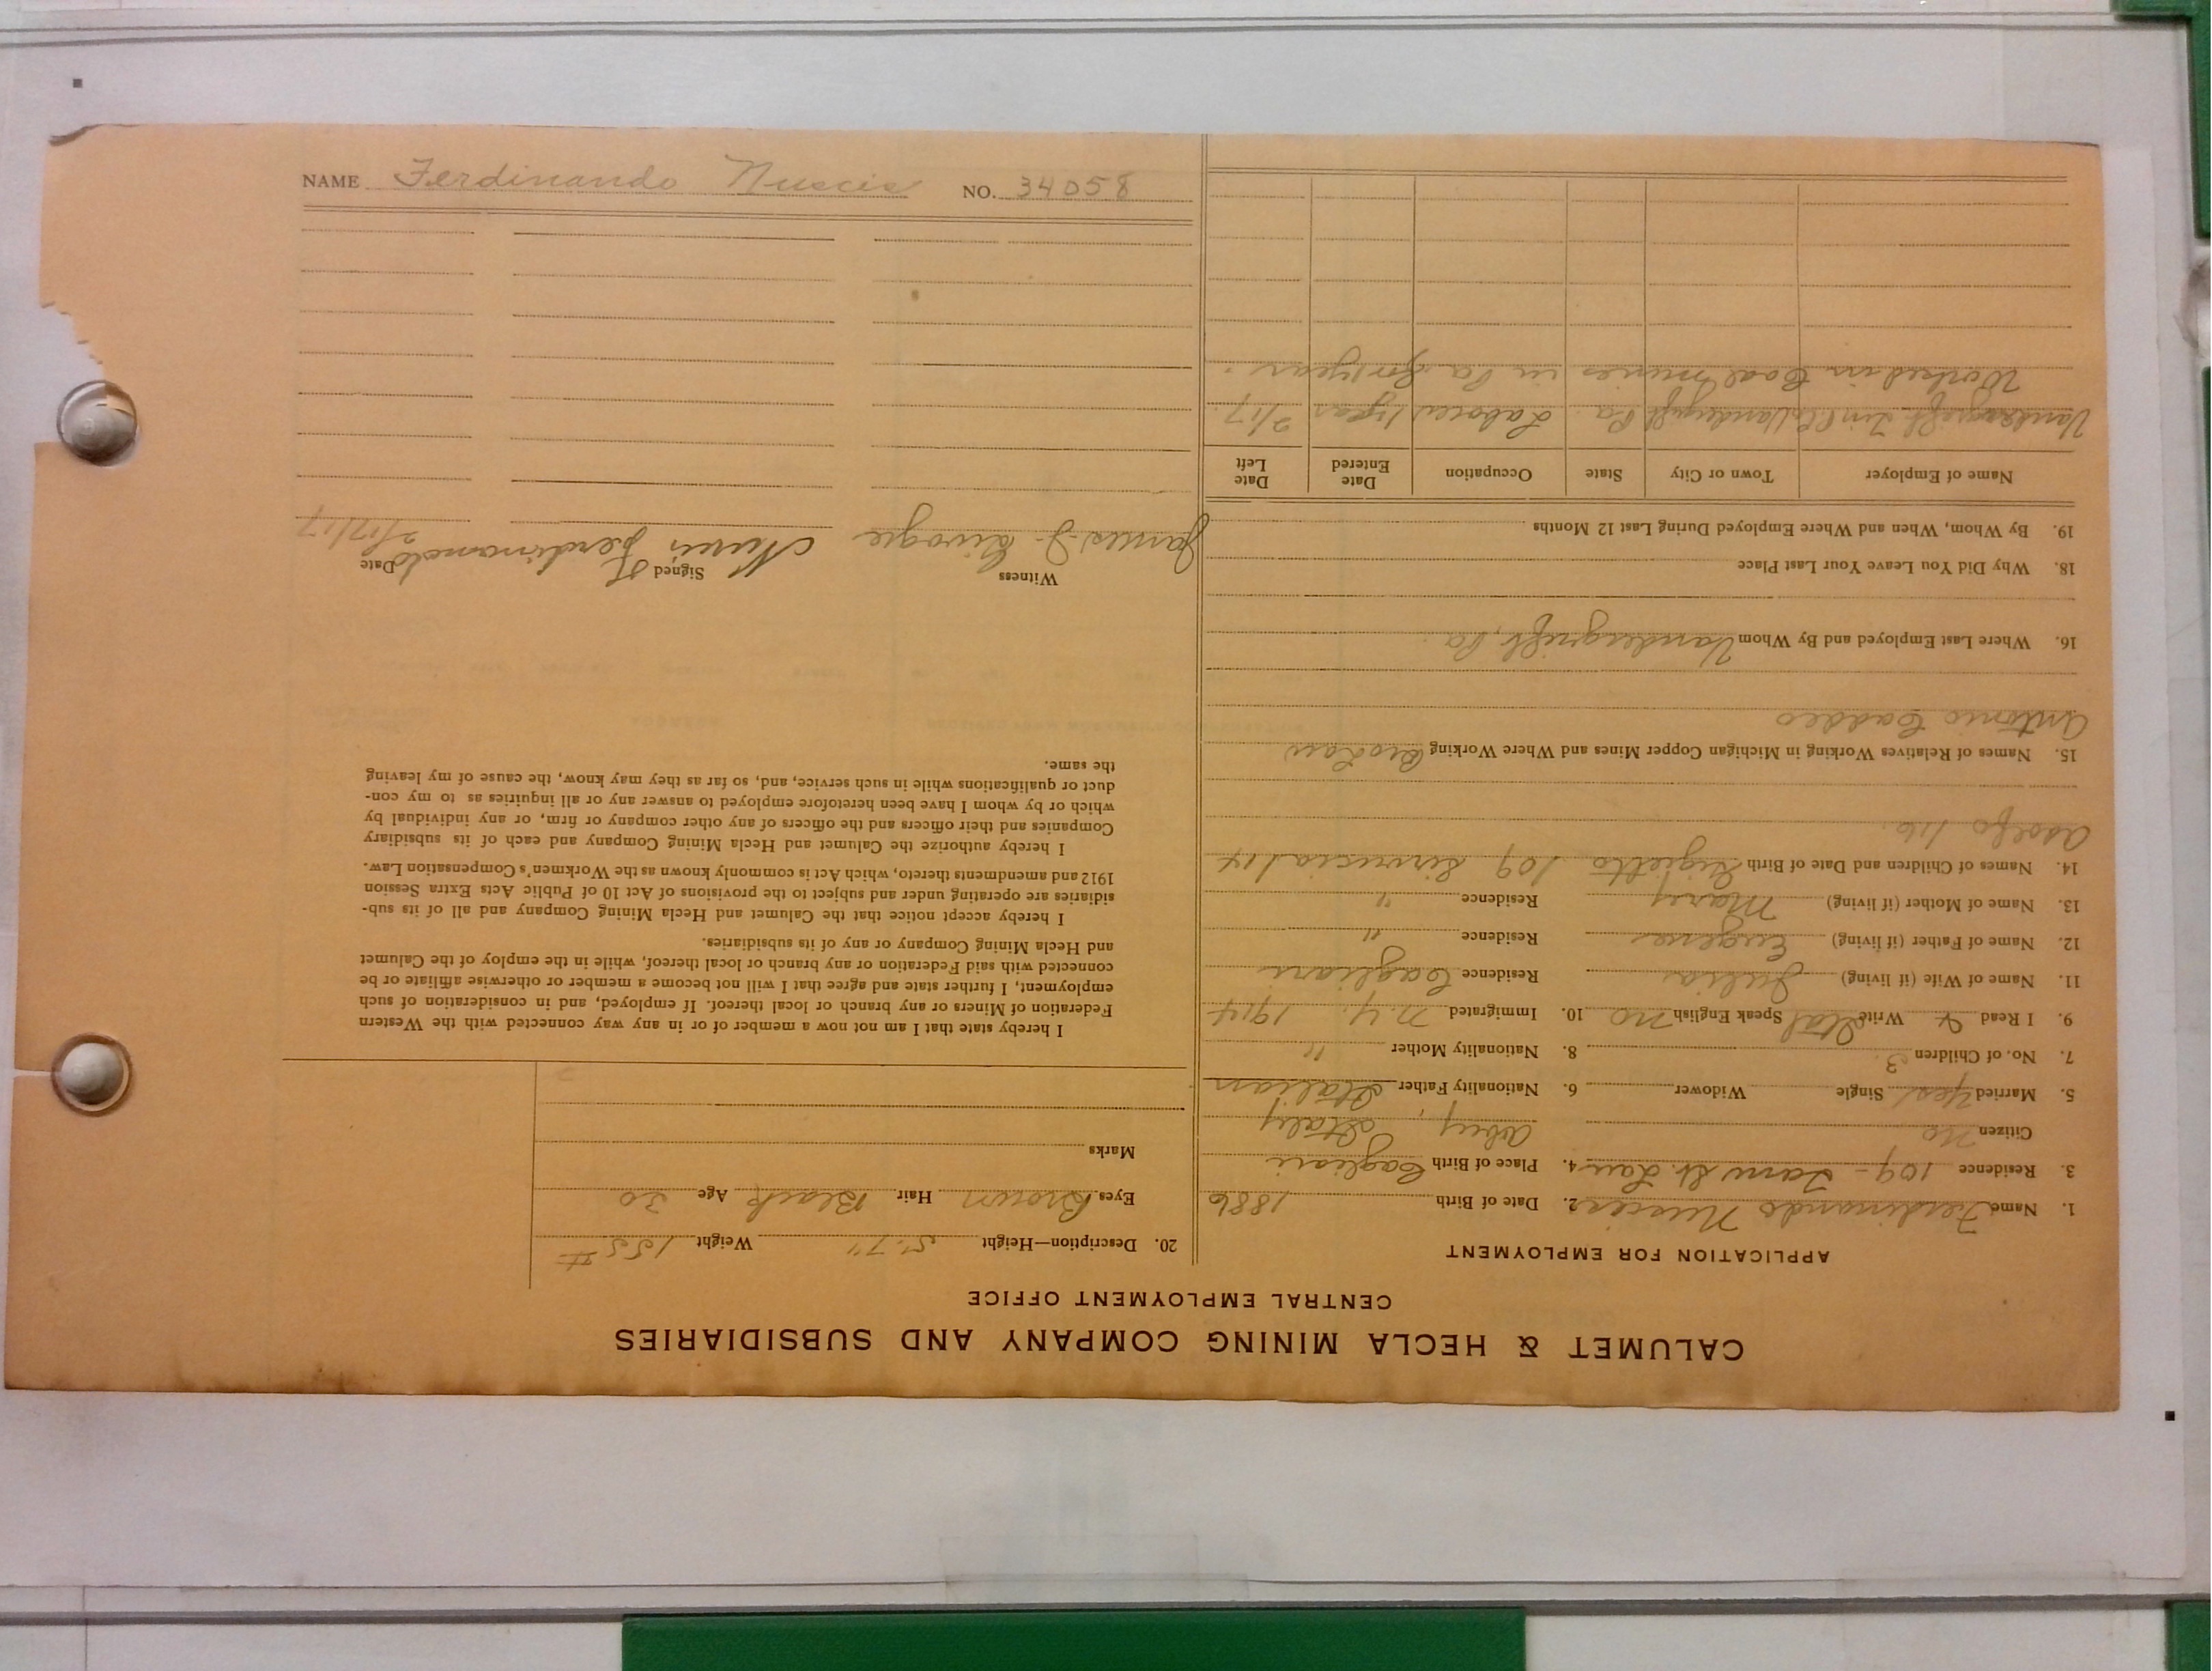 CALUMET & HECLA MINING COMPANY AND SUBSIDIARIES
CENTRAL EMPLOYMENT OFFICE
APPLICATION FOR EMPLOYMENT
1. Name Ferdinando 2. Date of Birth 1886
3. Residence 109 - St. 4. Place of Birth Cagliari
Citizen No Italy
5. Married Yes Single Widower 6. Nationality Father Italian
7. No. of Children 3 8. Nationality Mother "
9. I Read & Write Ital Speak English no 10. Immigrated N.Y. 1914
11. Name of Wife (if living) Julia Residence Cagliari
12. Name of Father (if living) Eugene Residence "
13. Name of Mother (if living) Mary Residence "
14. Names of Children and Date of Birth 109 114
116
15. Names of Relatives Working in Michigan Copper Mines and Where Working Bro Law
Antonio Caddeo
16. Where Last Employed and By Whom Vandergrift, Pa
18. Why Did You Leave Your Last Place
19. By Whom, When and Where Employed During Last 12 Months
Name of Employer Town or City State Occupation Date Entered Date Left
Vandergrift Tin Vandergrift Pa Laborer 1 year 2/17
Worked in Coal mines in Pa for 1 year.
20. Description—Height 5'.7" Weight 155#
Eyes Brown Hair Black Age 30
Marks
I hereby state that I am not now a member of or in any way connected with the Western
Federation of Miners or any branch or local thereof. If employed, and in consideration of such
employment, I further state and agree that I will not become a member or otherwise affiliate or be
connected with said Federation or any branch or local thereof, while in the employ of the Calumet
and Hecla Mining Company or any of its subsidiaries.
I hereby accept notice that the Calumet and Hecla Mining Company and all of its sub-
sidiaries are operating under and subject to the provisions of Act 10 of Public Acts Extra Session
1912 and amendments thereto, which Act is commonly known as the Workmen's Compensation Law.
I hereby authorize the Calumet and Hecla Mining Company and each of its subsidiary
Companies and their officers and the officers of any other company or firm, or any individual by
which or by whom I have been heretofore employed to answer any or all inquiries as to my con-
duct or qualifications while in such service, and, so far as they may know, the cause of my leaving
the same.
Witness Signed Date
James J. Ferdinando 2/17/17
NAME Ferdinando NO. 34058